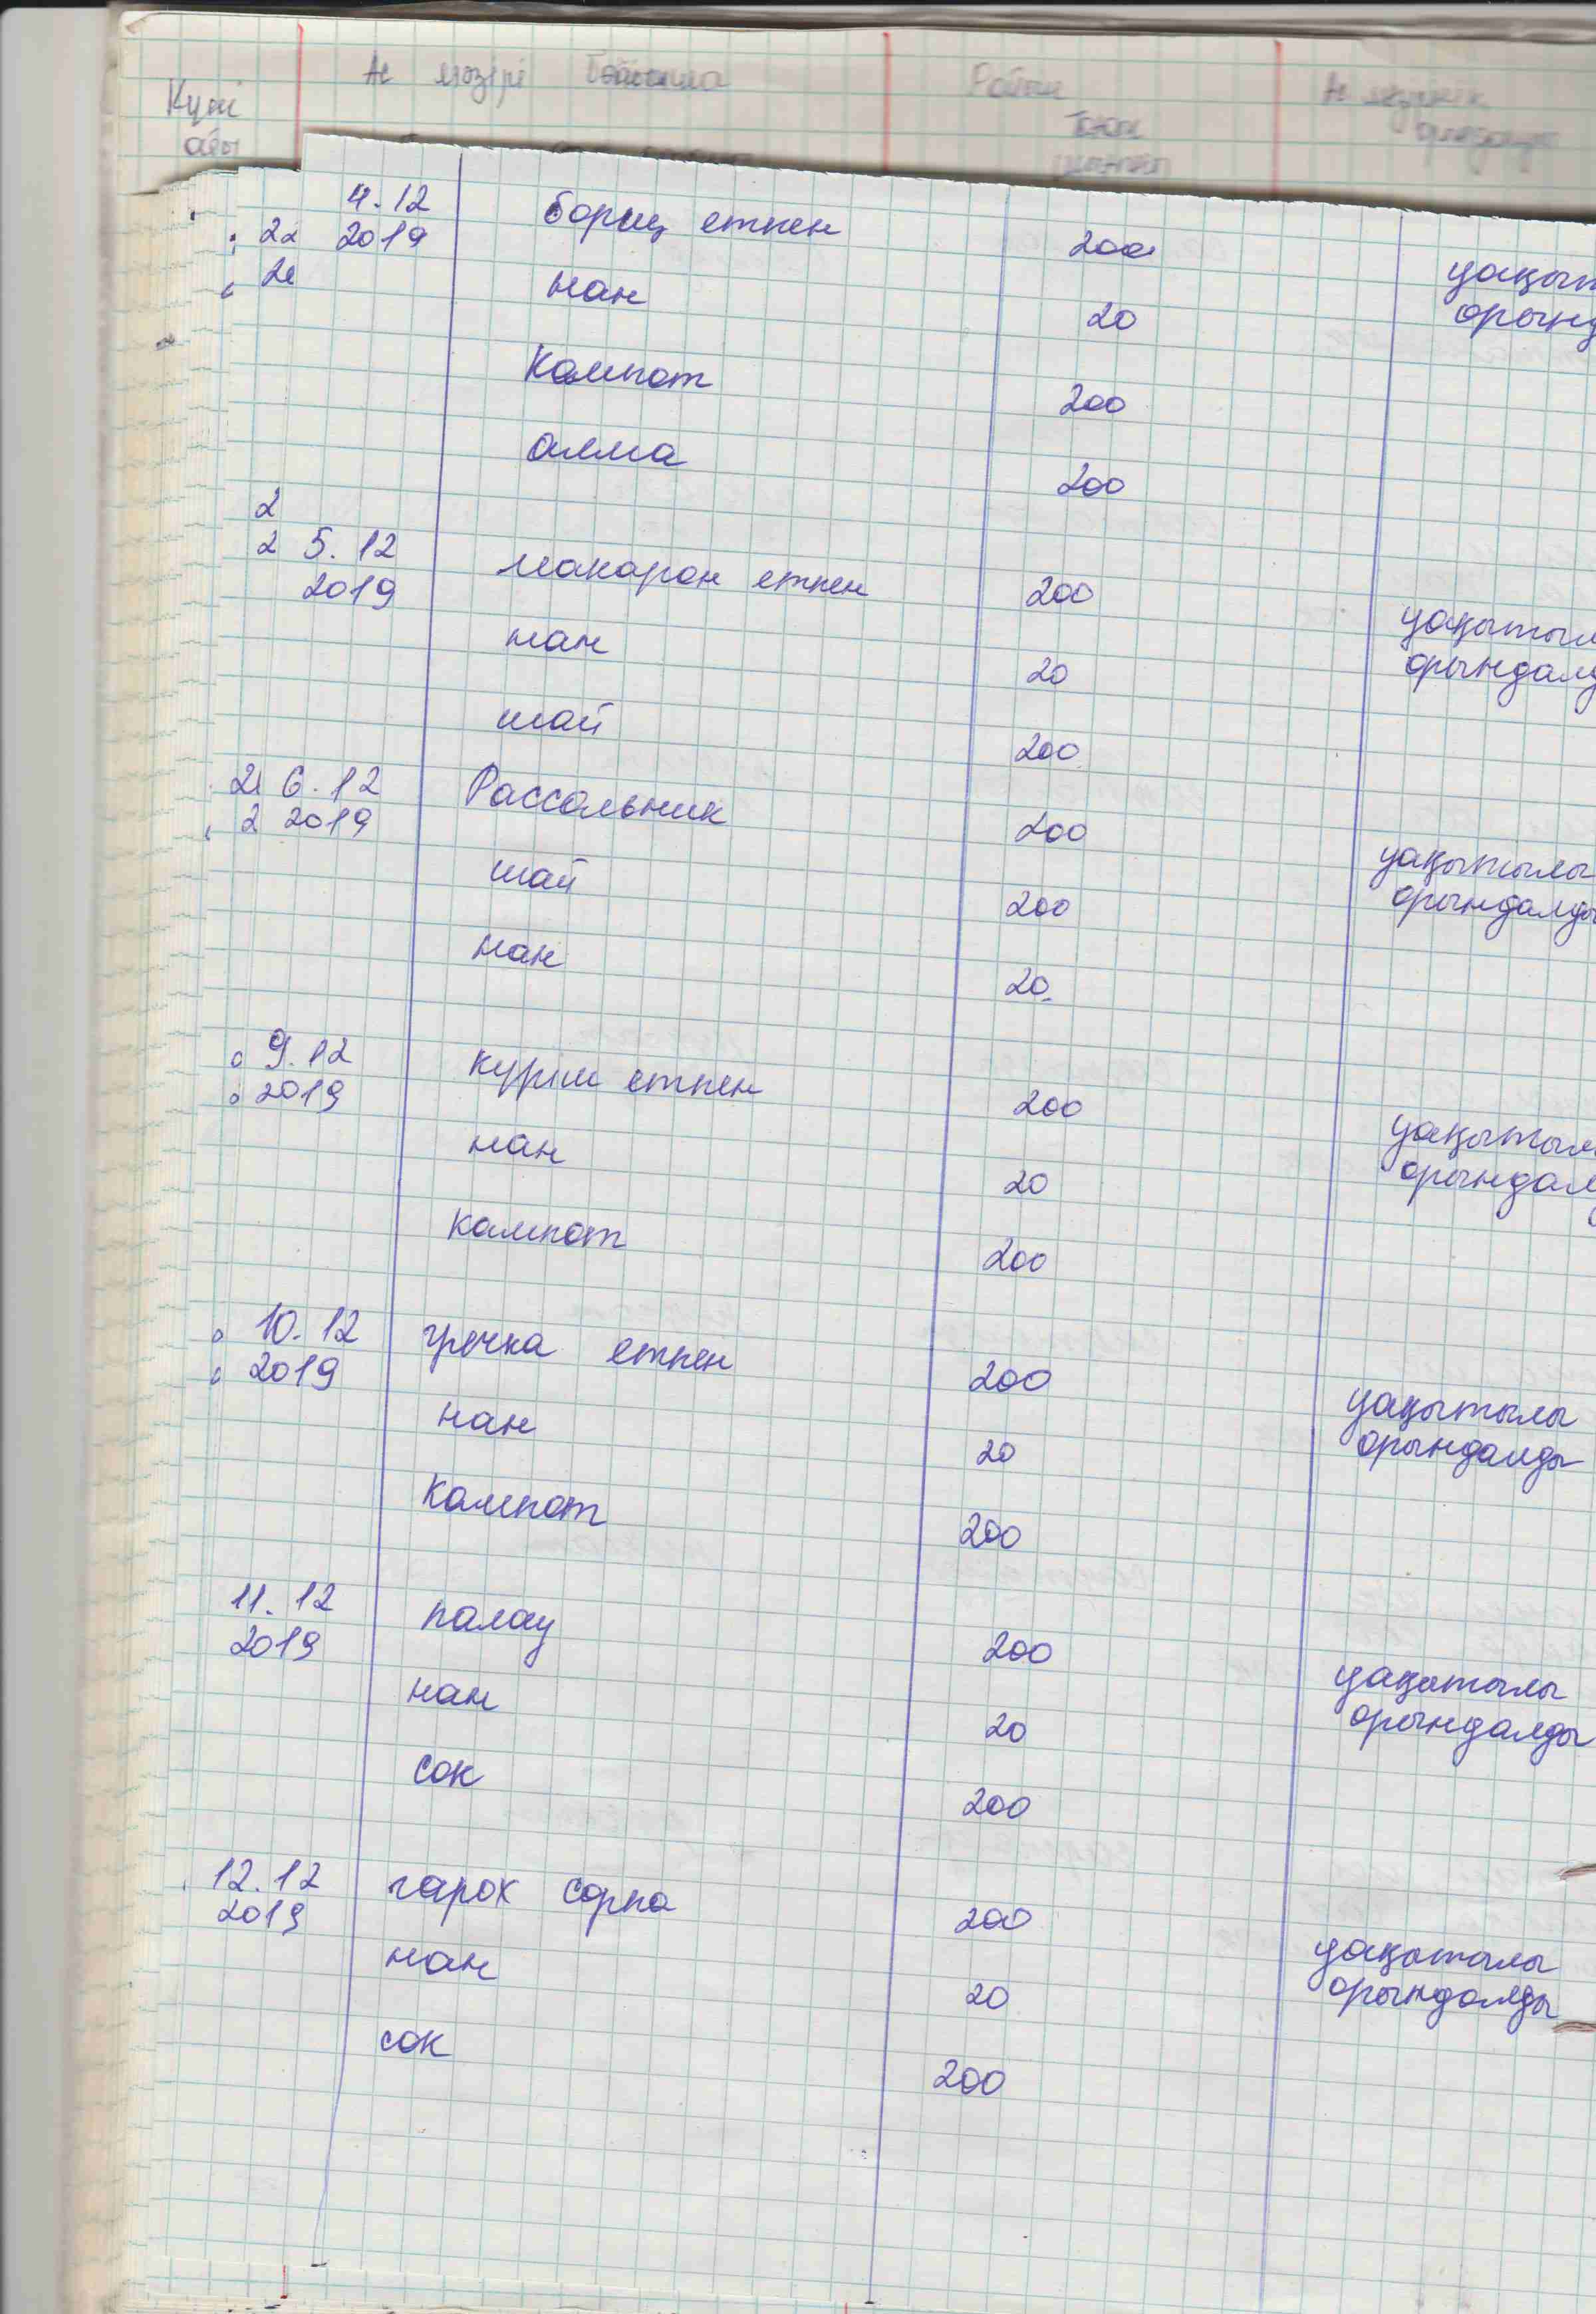 Күні Ас мәзірі
айы
4.12 борщ етпен 200
22 2019 уақыт
нан 20 орынд
Компот 200
алма 200
2
2 5.12 макарон етпен 200
2019 уақытыл
нан 20 орындалд
шай 200
6.12 Рассольник 200
2 2019 уақытылы
шай 200 орындалды
нан 20
9.12 күріш етпен 200
2019 уақытыл
нан 20 орындал
компот 200
10.12 гречка етпен 200
2019 уақытылы
нан 20 орындалды
Компот 200
11.12 палау 200
2019 уақытылы
нан 20 орындалды
сок 200
12.12 гарох сорпа 200
2019 уақытылы
нан 20 орындалды
сок 200